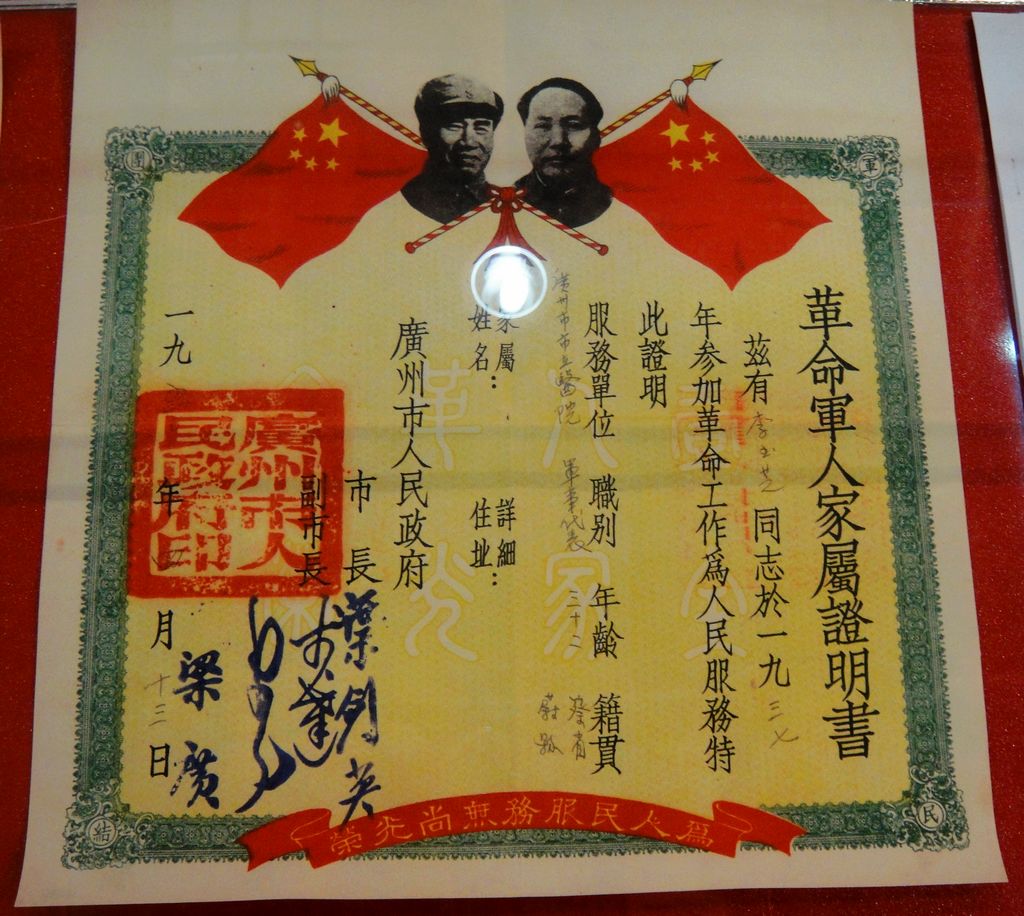 革命軍人家屬證明書
茲有李玉芝同志於一九三七
年参加革命工作爲人民服務特
此證明
服務單位 職別 年齡 籍貫
廣州市市立醫院 軍事代表 三十二 察省
蔚縣
家屬
姓名：
詳細
住址：
廣州市人民政府
市長 葉劍英
副市長
梁廣
一九 年 月十三日
廣州市人
民政府印
爲人民服務無尚光榮
軍
民
團
結
革命
光
家